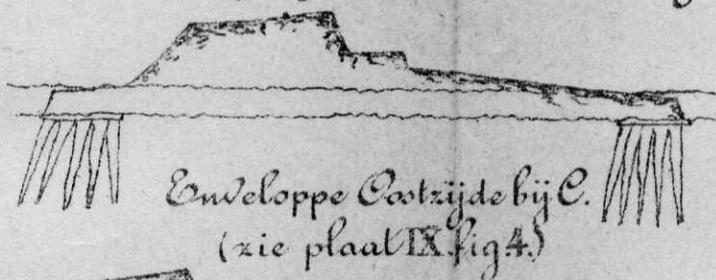 Enveloppe Oostzijde bij C.
(zie plaat IX fig 4.)